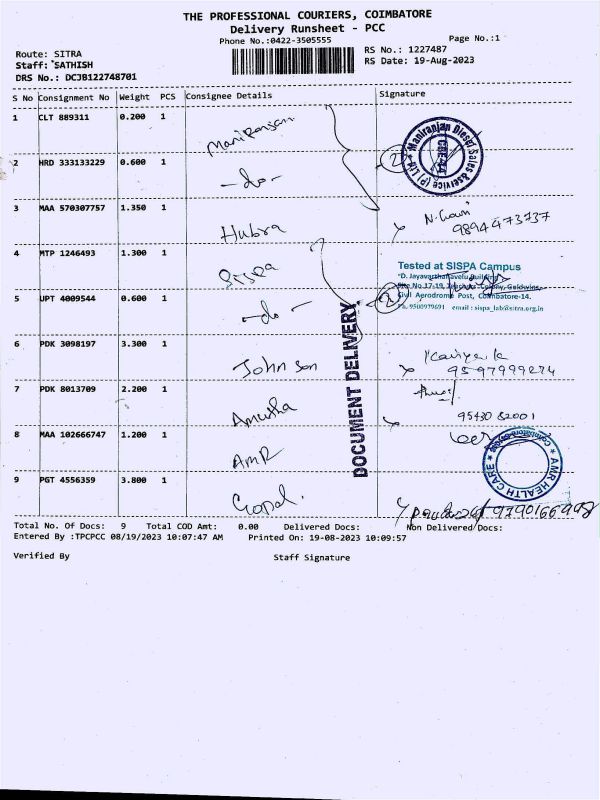 THE PROFESSIONAL COURIERS, COIMBATORE
Delivery Runsheet - PCC
Phone No.:0422-3505555
Page No.:1
Route: SITRA
RS No.: 1227487
Staff: SATHISH
RS Date: 19-Aug-2023
DRS No.: DCJB122748701
S No Consignment No Weight PCS Consignee Details Signature
1 CLT 889311 0.200 1 Maniranjan
Maniranjan Diesel Sales & service (P) Ltd
2 HRD 333133229 0.600 1 -do- 2
3 MAA 570307757 1.350 1 Hubra
9894473737
4 MTP 1246493 1.300 1 Sispa
Tested at SISPA Campus
5 UPT 4009544 0.600 1 -do- 2
Civil Aerodrome Post, Coimbatore-14.
Ph. 9500979691 email : sispa_lab@sitra.org.in
DOCUMENT DELIVERY
6 PDK 3098197 3.300 1 Johnson
9597999274
7 PDK 8013709 2.200 1 Anusha
95430 82001
8 MAA 102666747 1.200 1 AMR
AMR HEALTH CARE
9 PGT 4556359 3.800 1 Gopal.
9790166998
Total No. Of Docs: 9 Total COD Amt: 0.00 Delivered Docs: Non Delivered Docs:
Entered By :TPCPCC 08/19/2023 10:07:47 AM Printed On: 19-08-2023 10:09:57
Verified By Staff Signature